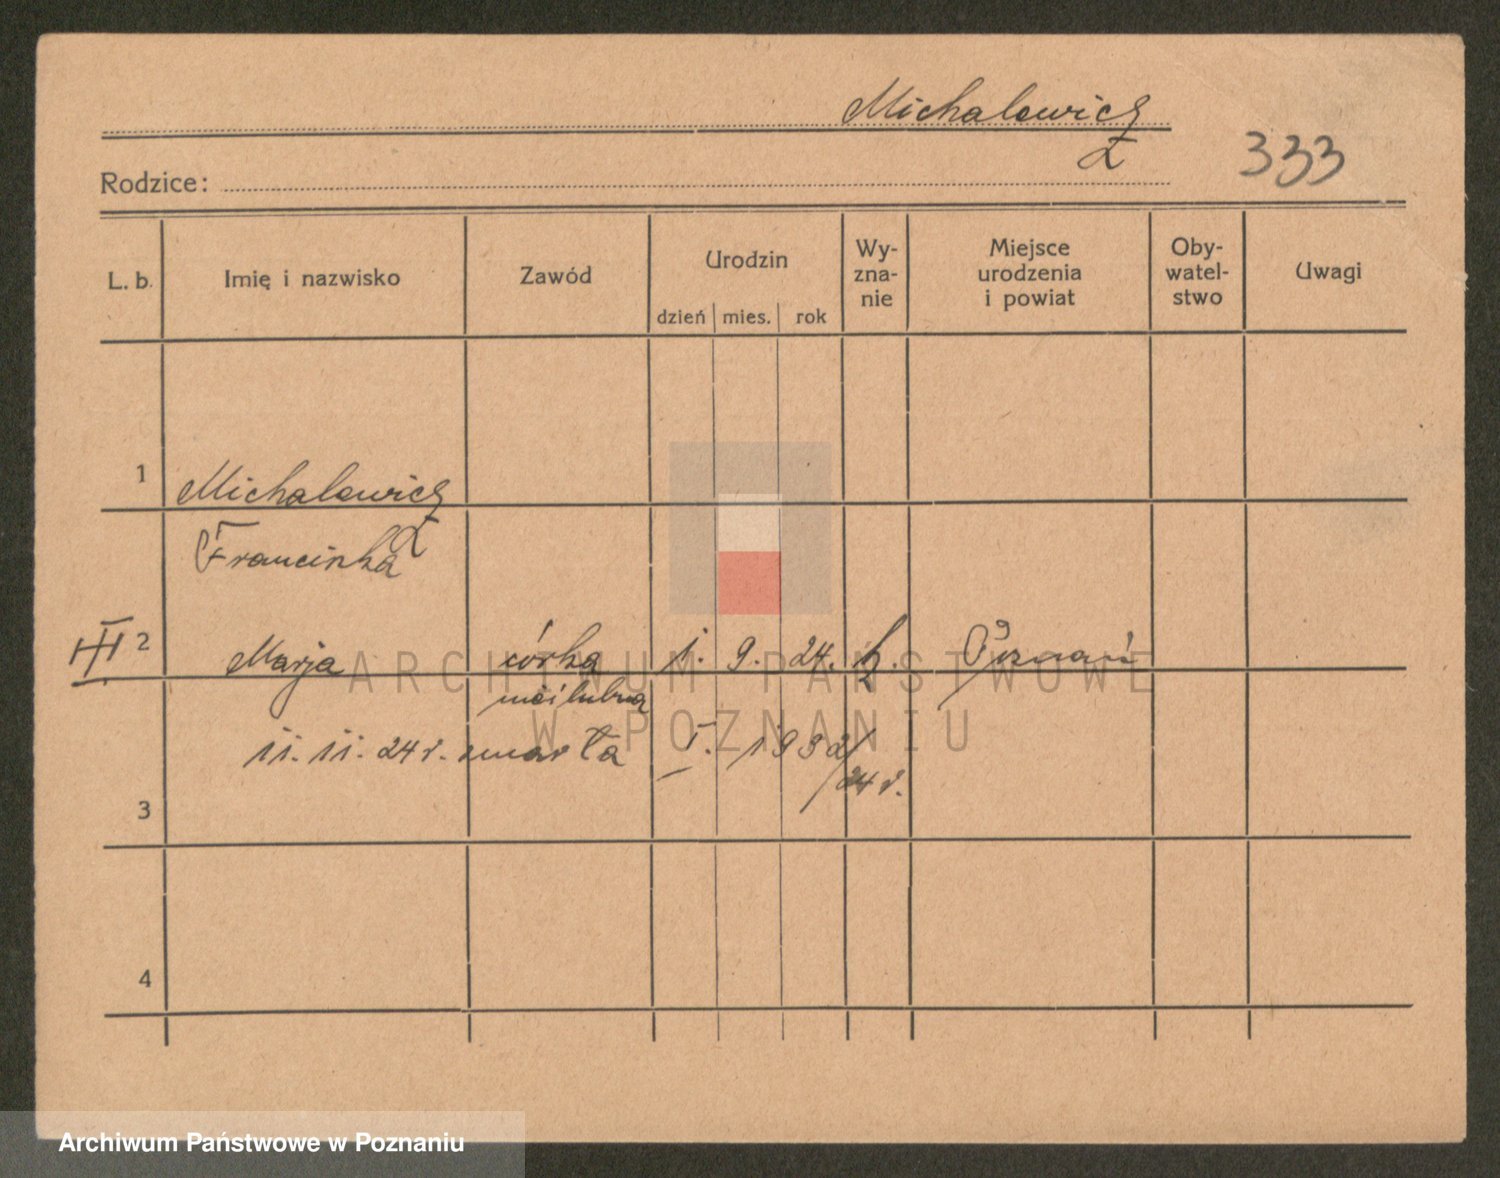 Michalowicz
333
Rodzice:
L. b.
Imię i nazwisko
Zawód
Urodzin
dzień mies. rok
Wy-
zna-
nie
Miejsce
urodzenia
i powiat
Oby-
watel-
stwo
Uwagi
1
Michalowicz
Francinka
III 2 Marja córka 1. 9. 24. k. Poznań
nieślubna
11. 11. 24 r. zmarła I. 1932/
24 r.
3
4
ARCHIWUM PAŃSTWOWE
W POZNANIU
Archiwum Państwowe w Poznaniu